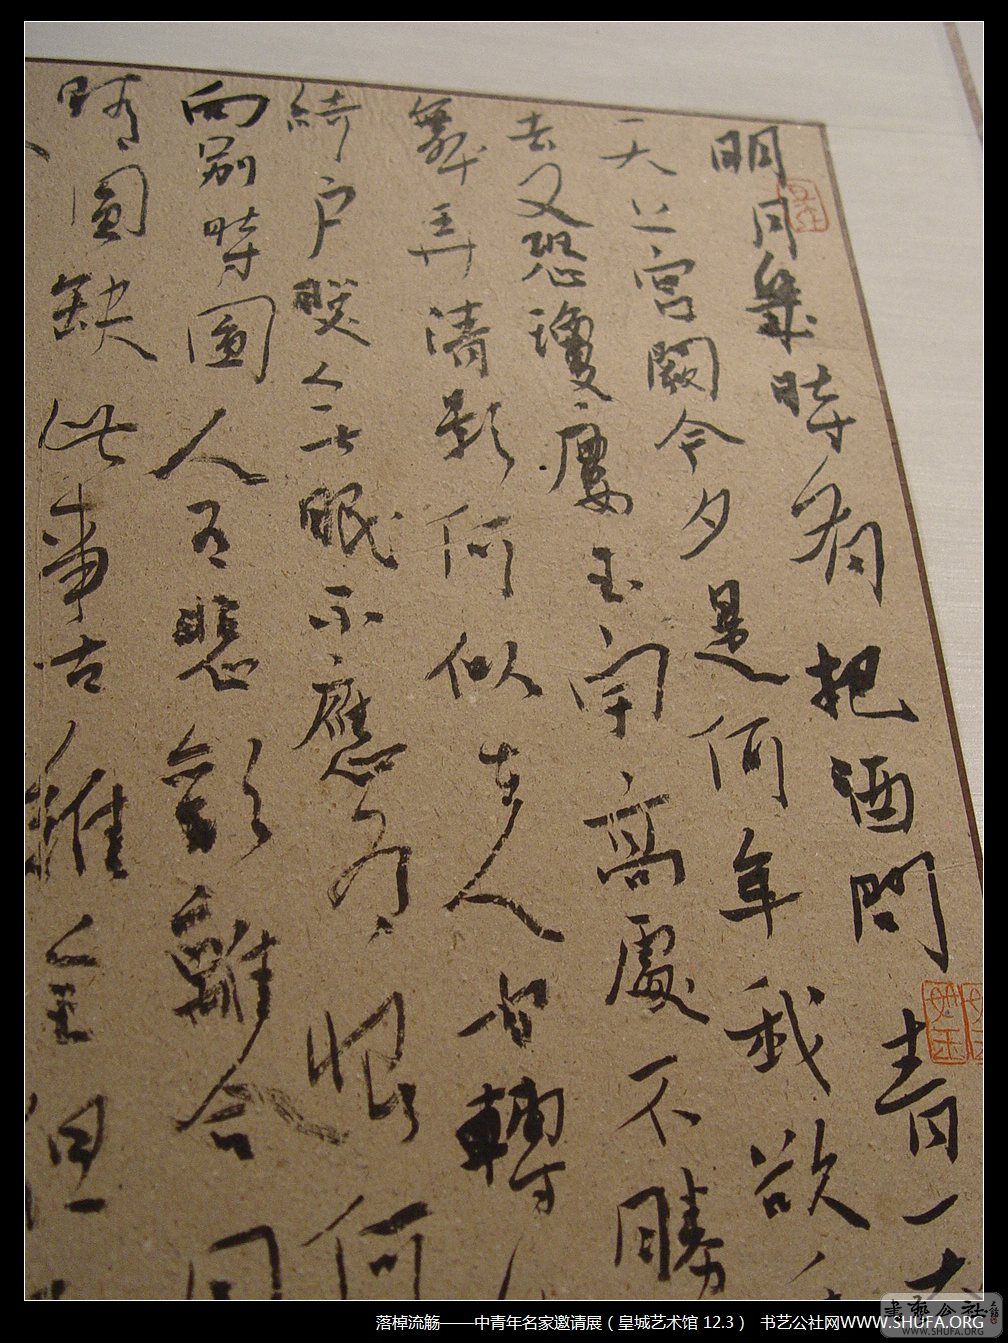 明月幾時有把酒問青天
天上宮闕今夕是何年我欲
去又恐瓊廔玉宇高處不勝
舞弄清影何似在人間轉
綺户照無眠不應有恨何
向別時圓人有悲歡離合月
晴圓缺此事古難全但
落棹流觞——中青年名家邀请展（皇城艺术馆 12.3） 书艺公社网WWW.SHUFA.ORG
書艺公社
WWW.SHUFA.ORG